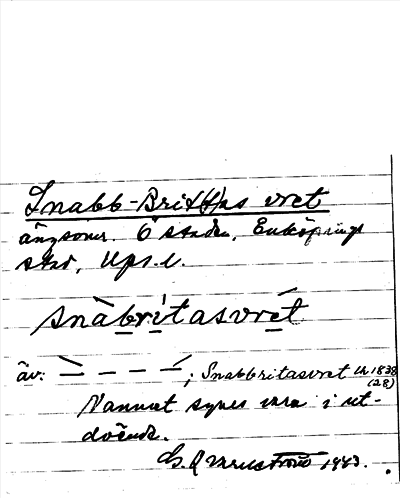 Snabb-Brit(t)as vret
ängsomr. Ö staden, Enköpings
stad, Upps.l.
snàbrítasvrét
äv: \ – – – ´; Snabbritasvret Uk 1838
(28)
Namnet synes vara i ut-
döende.
1943.